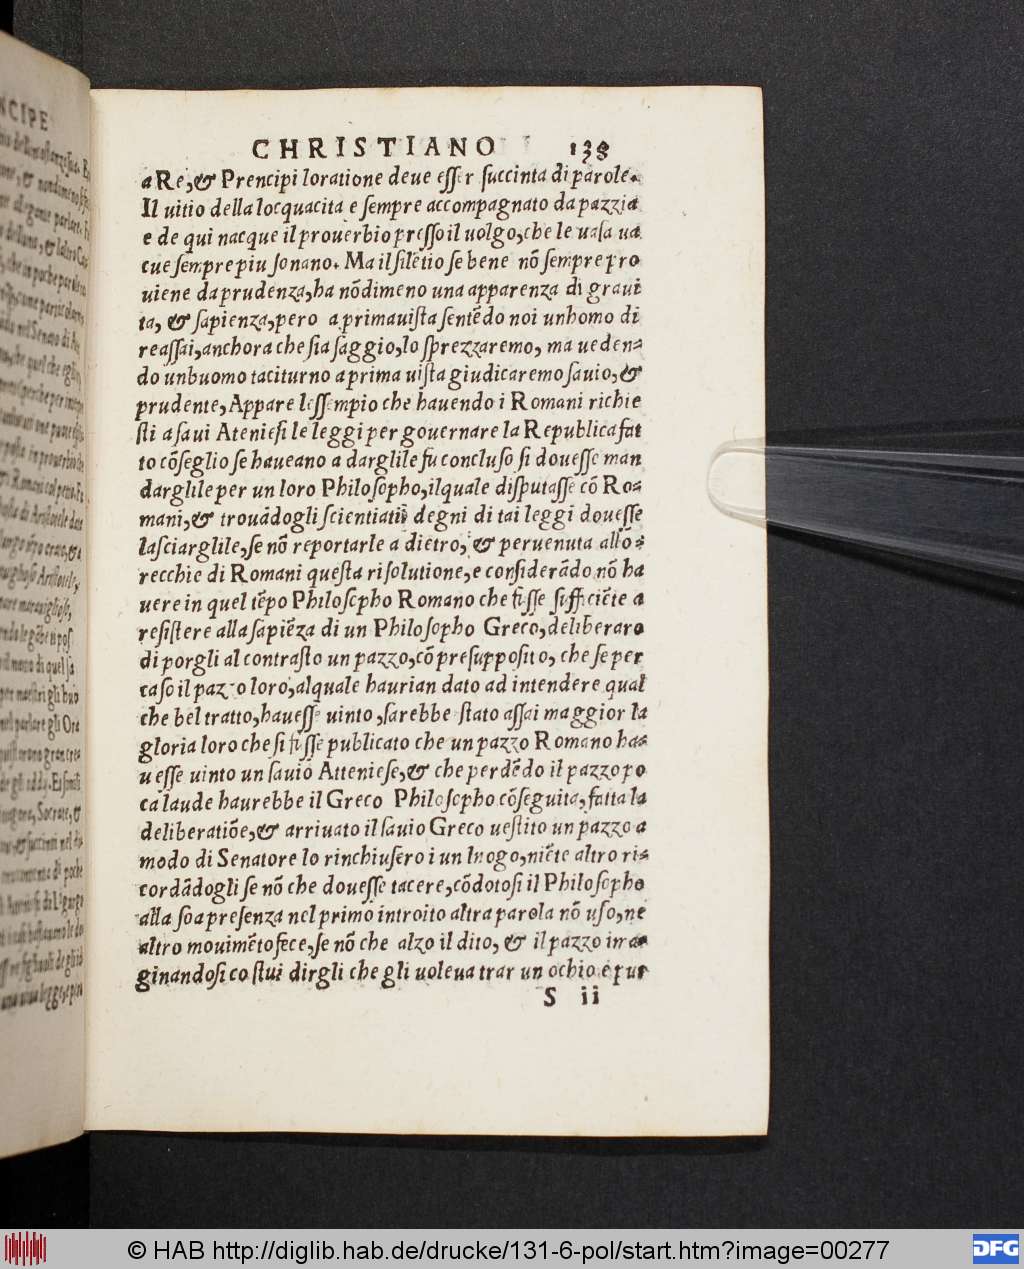 CHRISTIANO 138
a Re, & Prencipi loratione deue esser succinta di parole.
Il uitio della locquacita e sempre accompagnato da pazzia
e de qui nacque il prouerbio presso il uolgo, che le uasa ua
cue sempre piu sonano. Ma il silẽtio se bene nõ sempre pro
uiene da prudenza, ha nõdimeno una apparenza di graui
ta, & sapienza, pero a prima uista sentẽdo noi unhomo di
re assai, anchora che sia saggio, lo sprezzaremo, ma ueden-
do unbuomo taciturno a prima uista giudicaremo sauio, &
prudente, Appare lessempio che hauendo i Romani richie
sti a saui Ateniesi le leggi per gouernare la Republica fat
to cõseglio se haueano a darglile fu concluso si douesse man
darglile per un loro Philosopho, ilquale disputasse cõ Ro-
mani, & trouãdogli scientiati degni di tai leggi douesse
lasciarglile, se nõ reportarle a dietro, & peruenuta allo-
recchie di Romani questa risolutione, e considerãdo nõ ha
uere in quel tẽpo Philosopho Romano che fusse sufficiẽte a
resistere alla sapiẽza di un Philosopho Greco, deliberaro
di porgli al contrasto un pazzo, cõ presupposito, che se per
caso il pazzo loro, alquale haurian dato ad intendere qual
che bel tratto, hauesse uinto, sarebbe stato assai maggior la
gloria loro che si fusse publicato che un pazzo Romano ha-
uesse uinto un sauio Atteniese, & che perdẽdo il pazzo po
ca laude haurebbe il Greco Philosopho cõseguita, fatta la
deliberatiõe, & arriuato il sauio Greco uestito un pazzo a
modo di Senatore lo rinchiusero i un luogo, niẽte altro ri-
cordãdogli se nõ che douesse tacere, cõdotosi il Philosopho
alla soa presenza nel primo introito altra parola nõ uso, ne
altro mouimẽto fece, se nõ che alzo il dito, & il pazzo ima-
ginandosi costui dirgli che gli uoleua trar un ochio e pur
S ii
© HAB http://diglib.hab.de/drucke/131-6-pol/start.htm?image=00277
DFG